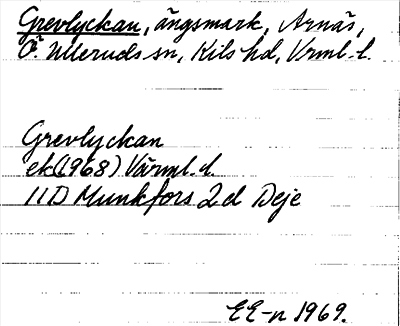 Grevlyckan, ängsmark, Arnäs,
Ö. Ulleruds sn, Kils hd, Vrml. l.
Grevlyckan
ek (1968) Värml. l.
11D Munkfors 2d Deje
EE-n 1969.